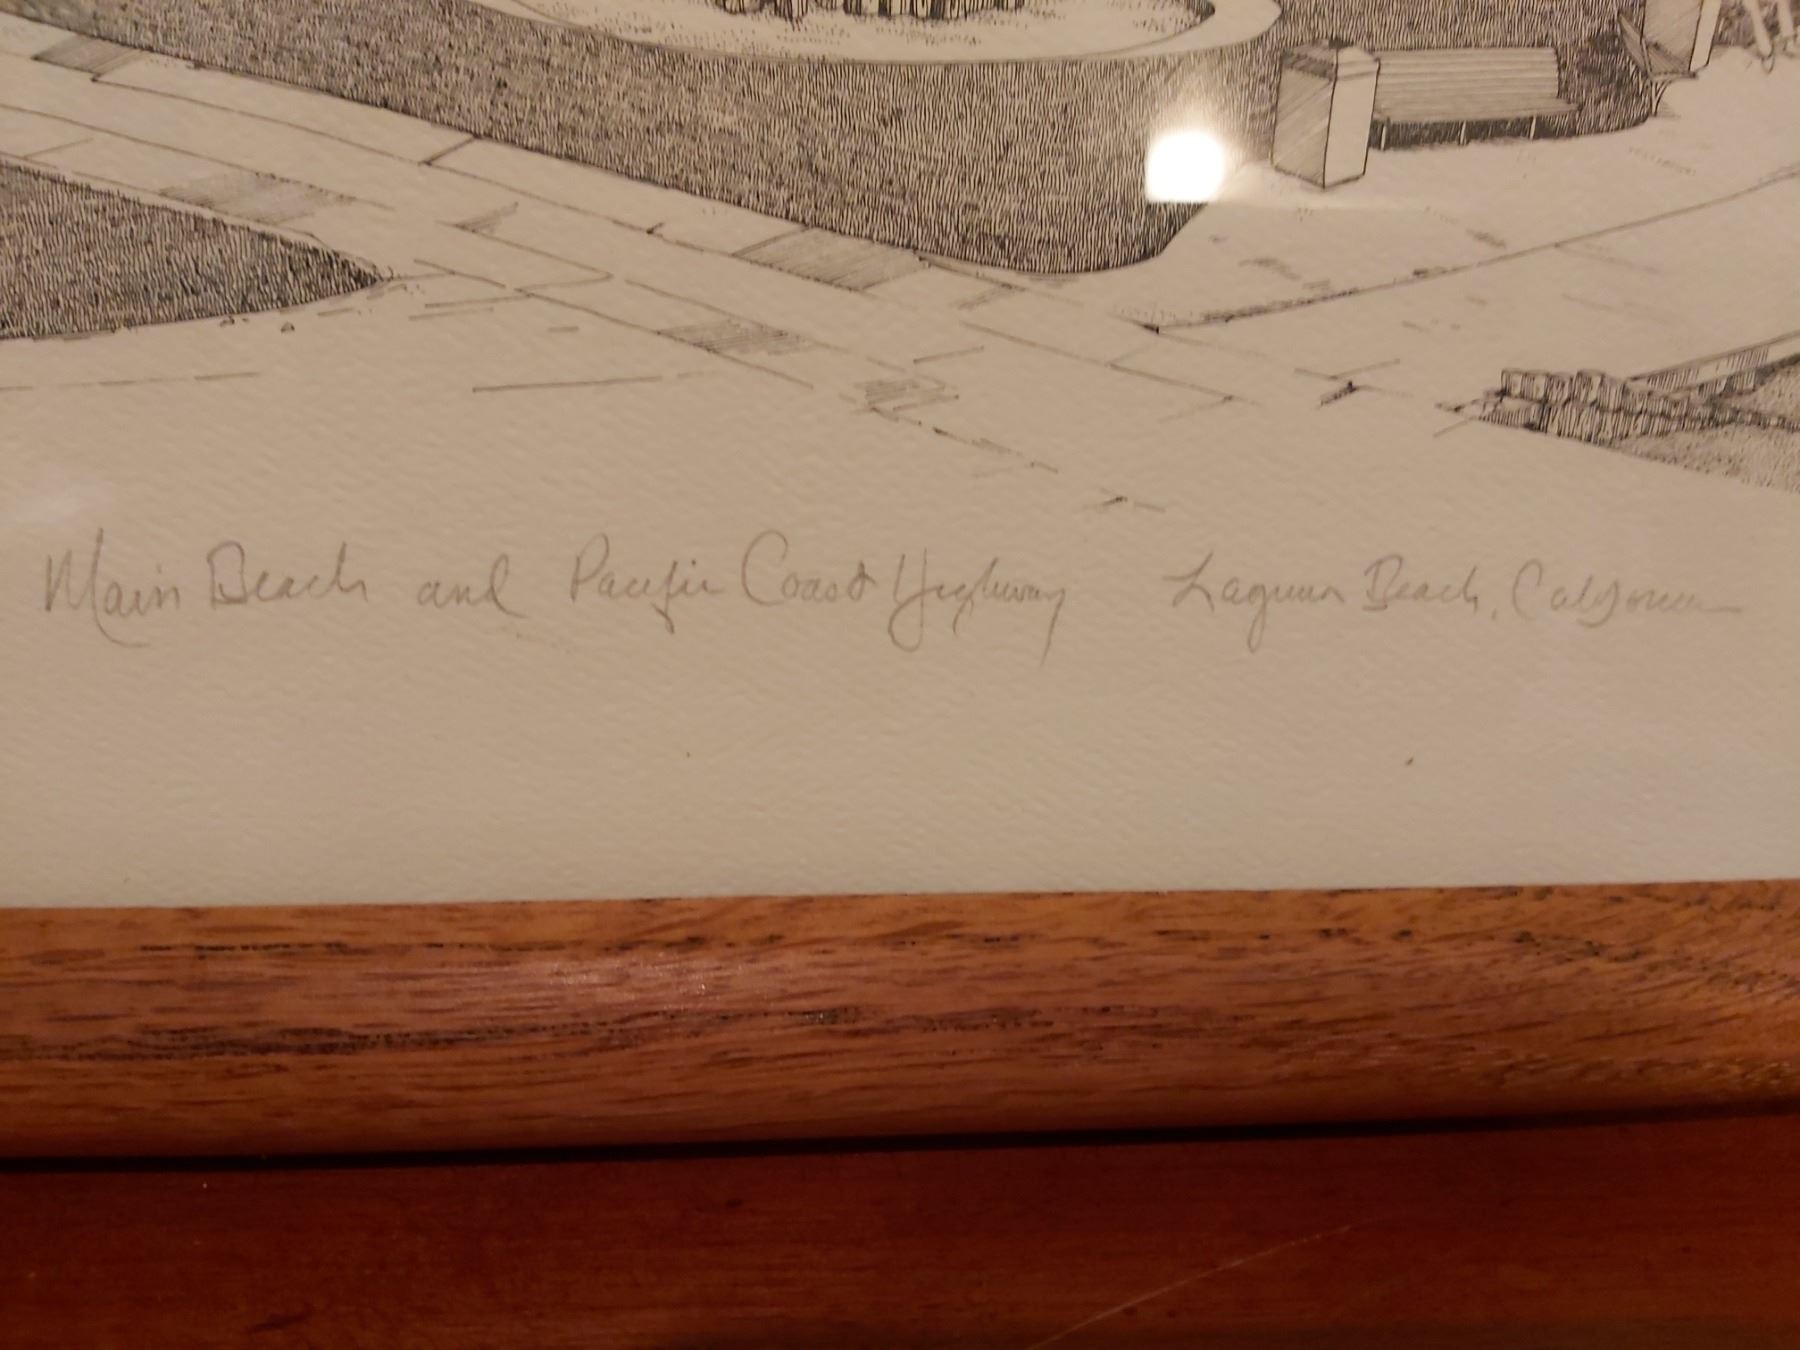 Main Beach and Pacific Coast Highway Laguna Beach, California